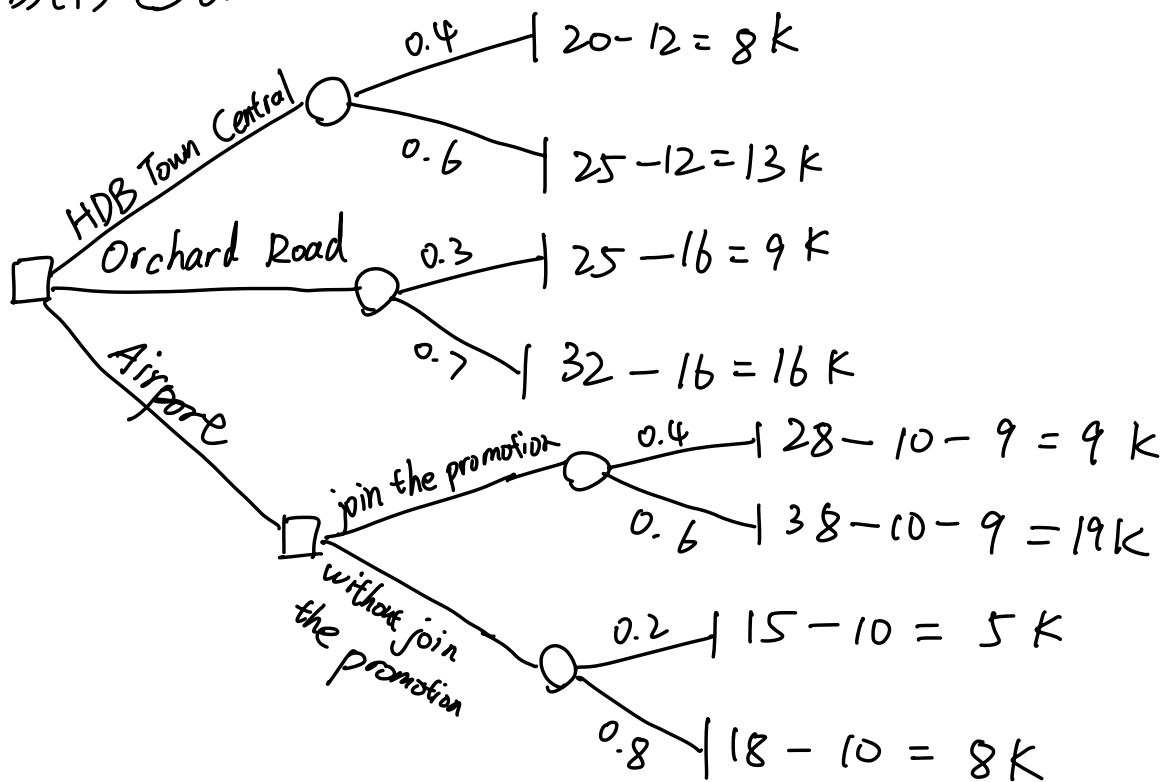 0.4 20-12 = 8 K
HDB Town Central
0.6 25-12=13 K
Orchard Road 0.3 25-16 = 9 K
0.7 32-16 = 16 K
Airpore
join the promotion 0.4 28-10-9 = 9 K
0.6 38-10-9 = 19K
without join
the promotion
0.2 15-10 = 5 K
0.8 18-10 = 8K